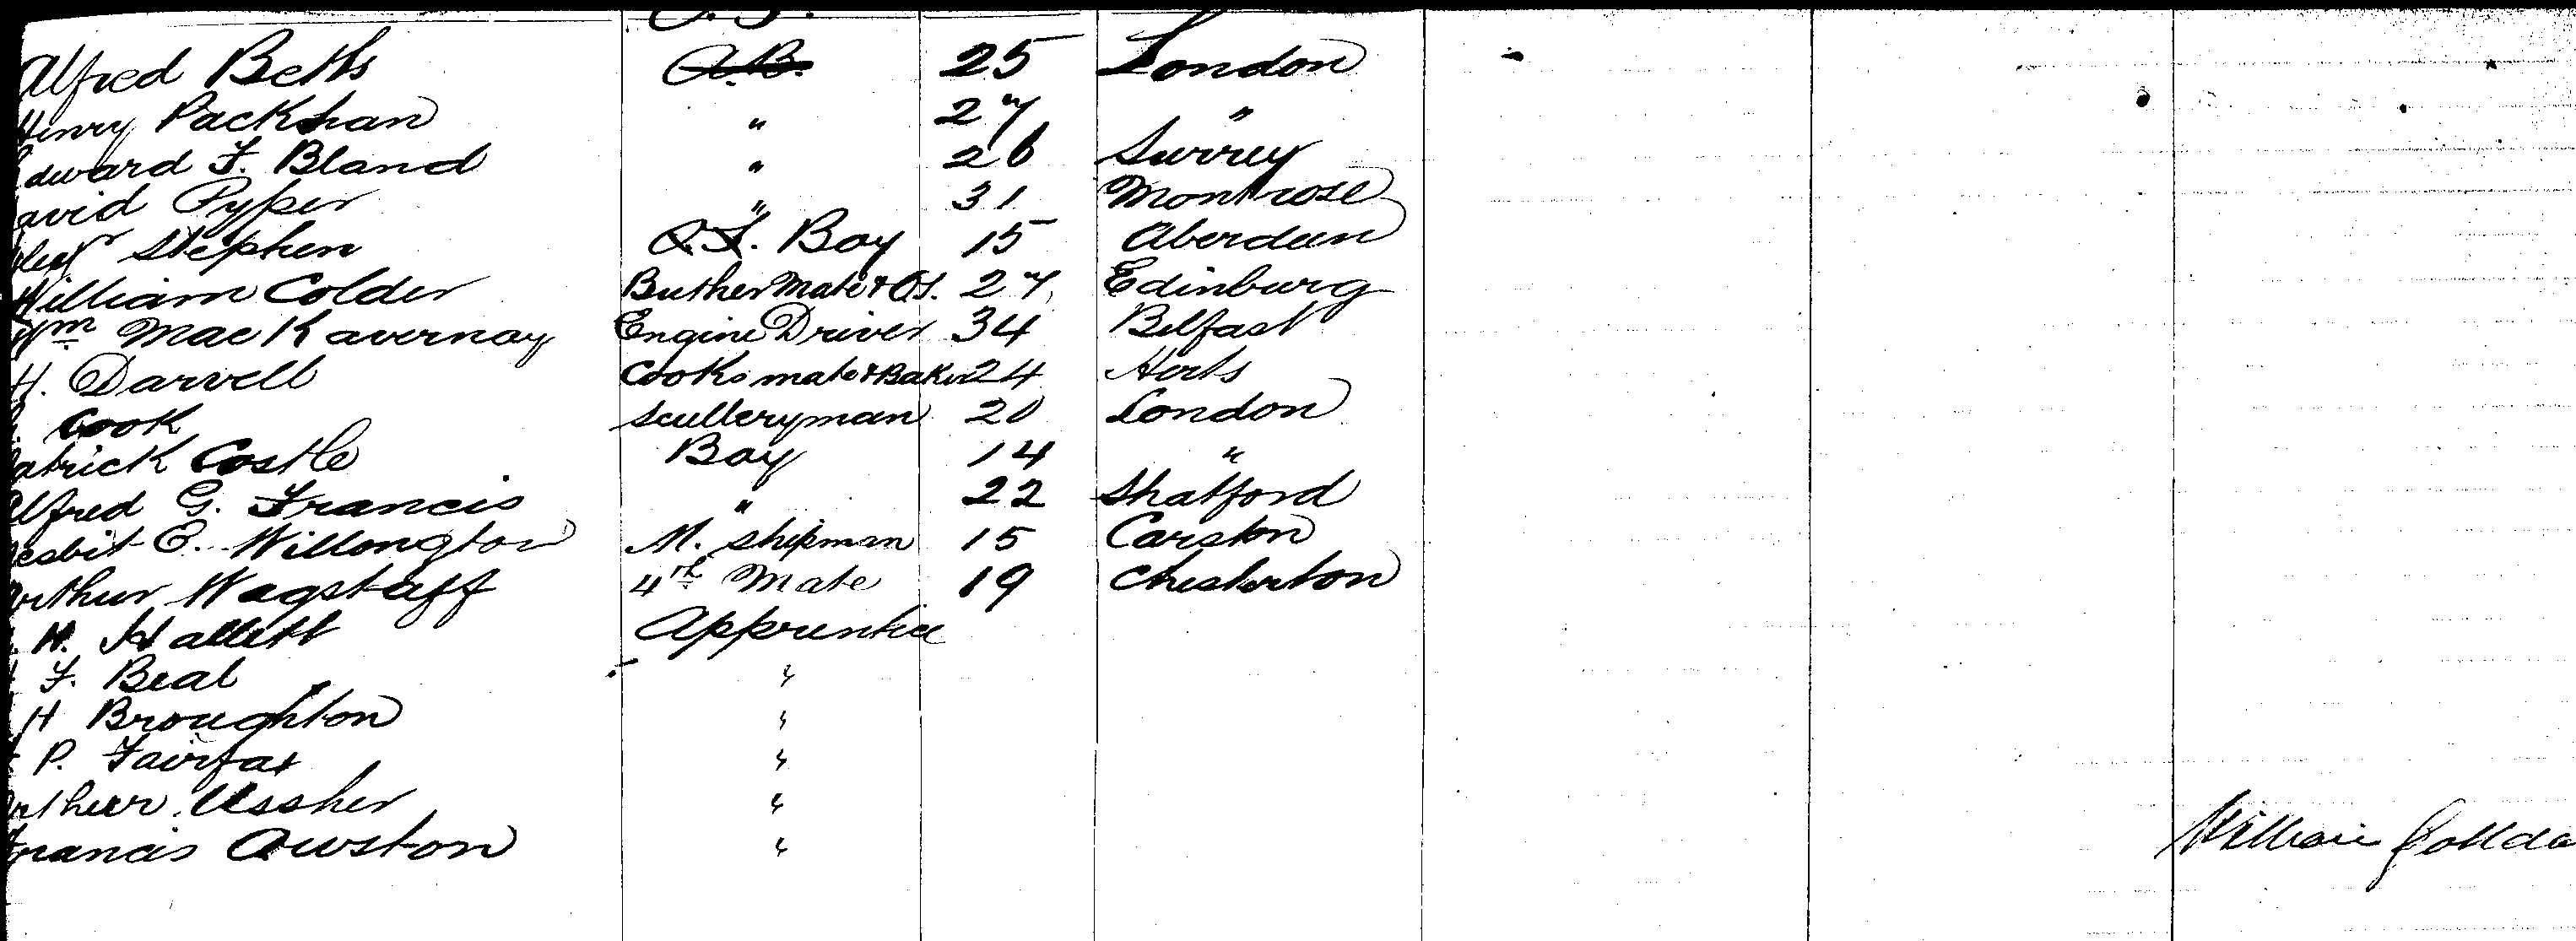 O. S.
Alfred Betts A.B. 25 London
Henry Packhan " 27 "
Edward F. Bland " 26 Surrey
David Pyper " 31 Montrose
Stephen O.S. Boy 15 Aberdeen
William Colder Buther Mate & OS. 27 Edinburg
Wm Mac Kavernay Engine Driver 34 Belfast
H. Darvell Cooks mate & Baker 24 Herts
Cook Sculleryman 20 London
Patrick Costle Boy 14 "
Alfred G. Francis " 22 Shatford
Nesbit E. Willongton M. Shipman 15 Carston
Arthur Wagstaff 4th Mate 19 Chesterton
H. Hallett Apprentice
F. Beal "
H Broughton "
P. Fairfax "
Arthur Ussher "
Francis Awston "
William